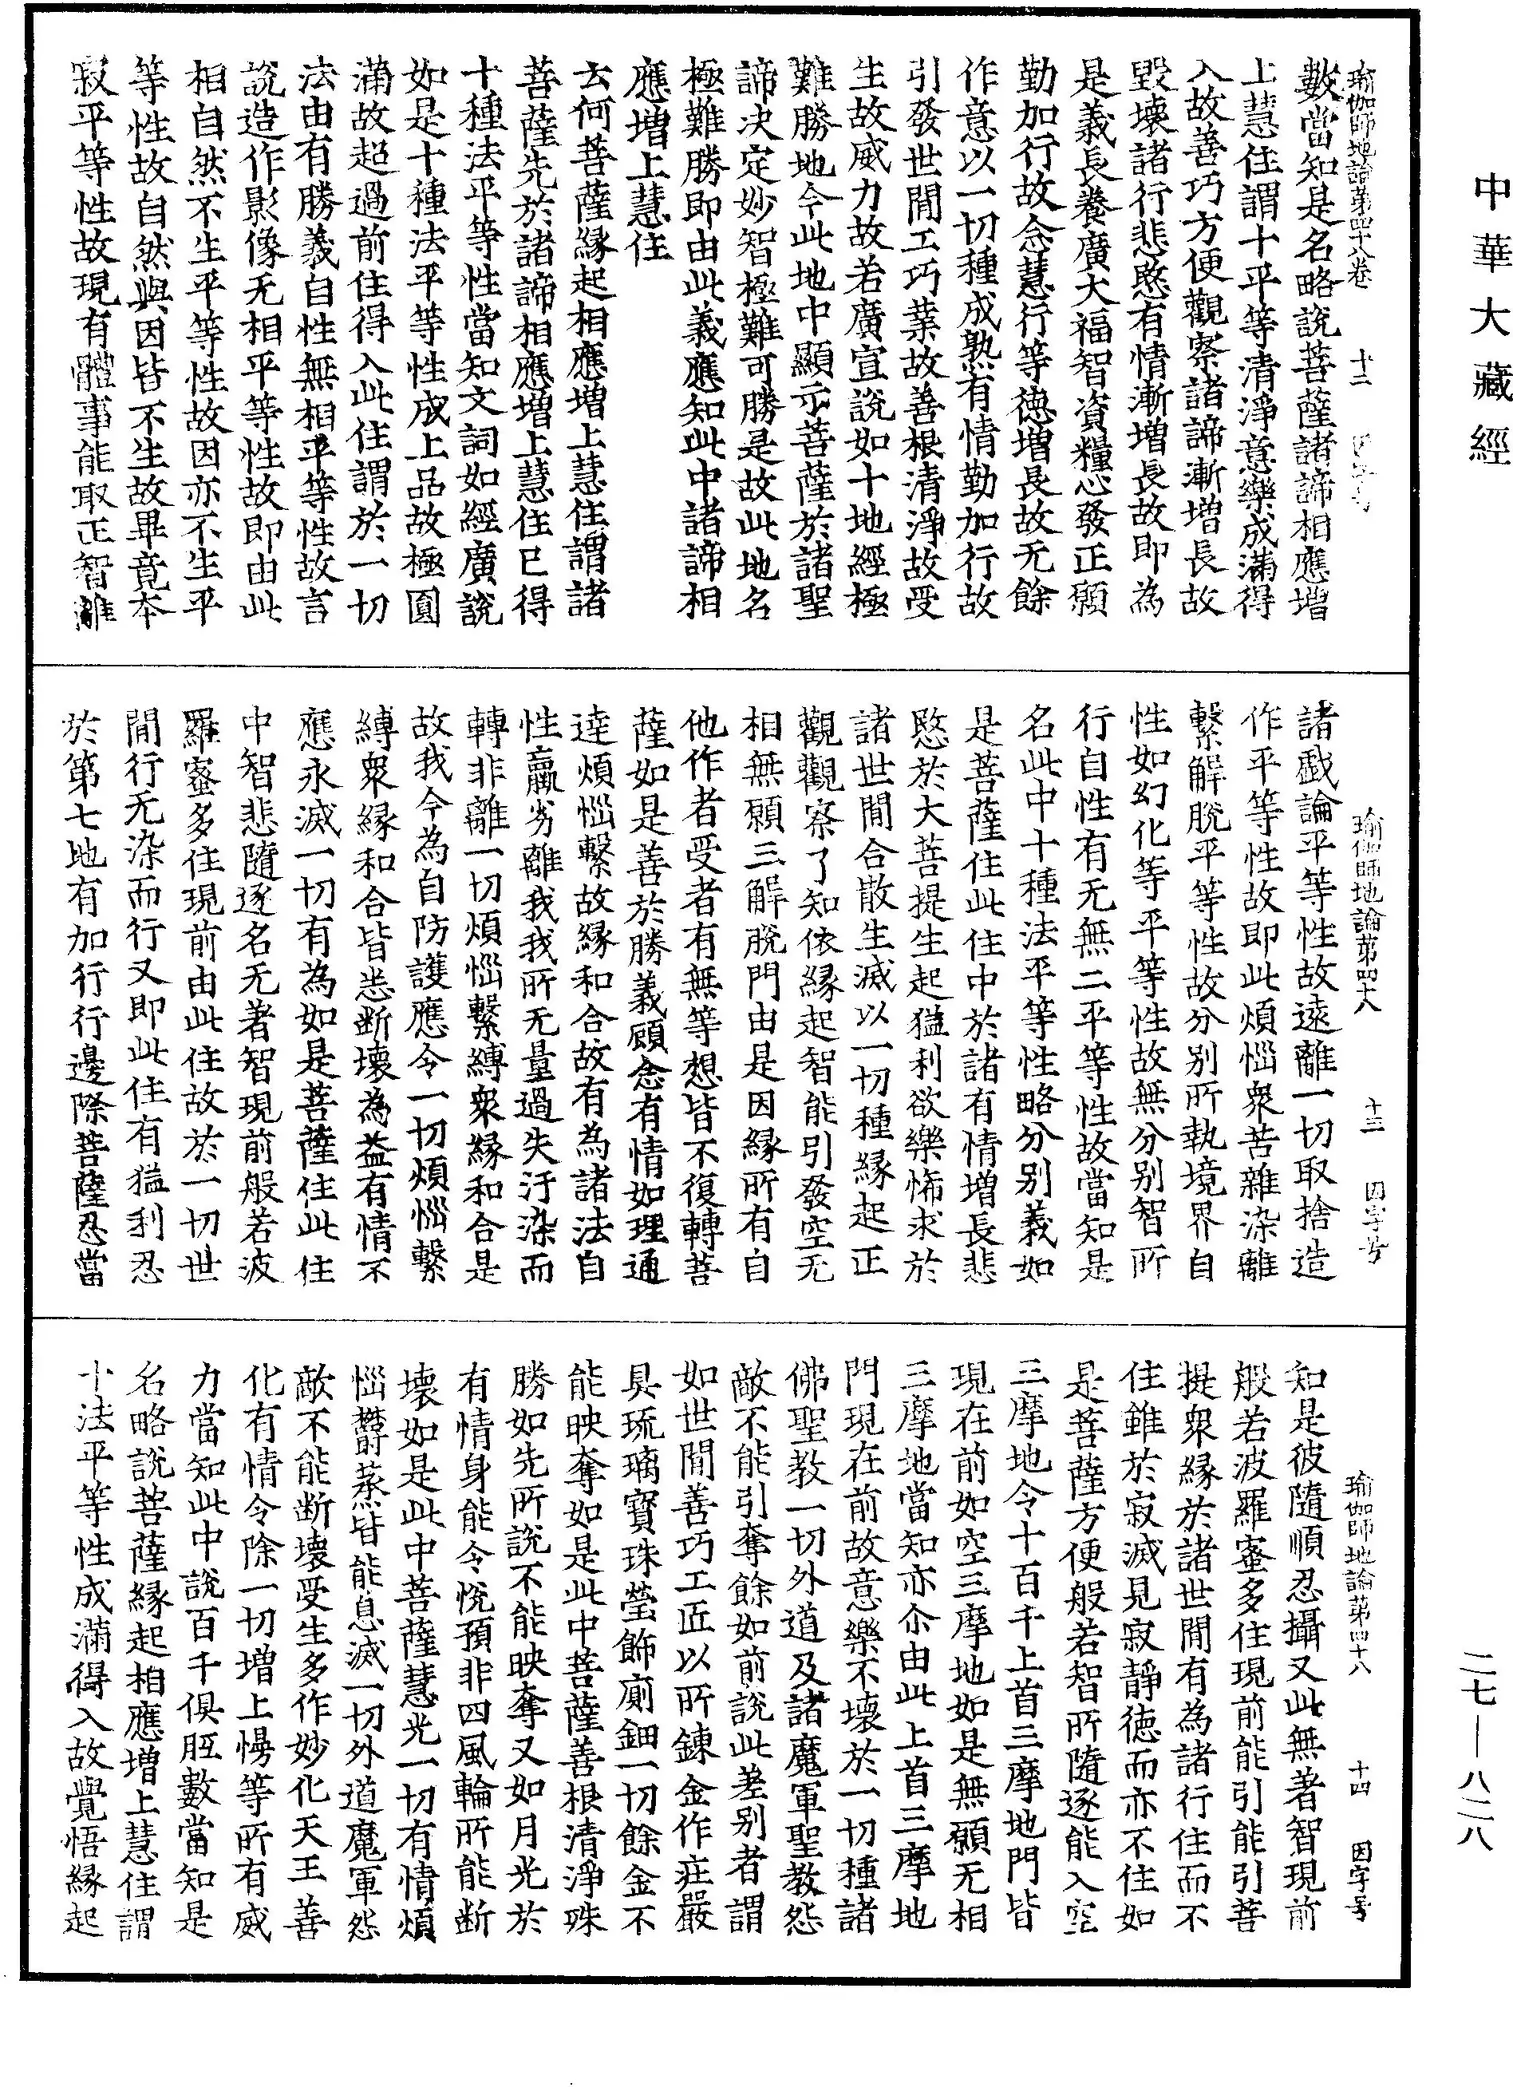 中華大藏經
瑜伽師地論第四十八卷 十二 因字号
數當知是名略說菩薩諸諦相應增
上慧住謂十平等清淨意樂成滿得
入故善巧方便觀察諸諦漸增長故
毀壞諸行悲愍有情漸增長故即為
是義長養廣大福智資糧心發正願
勤加行故念慧行等德增長故无餘
作意以一切種成熟有情勤加行故
引發世間工巧業故善根清淨故受
生故威力故若廣宣說如十地經極
難勝地今此地中顯示菩薩於諸聖
諦决定妙智極難可勝是故此地名
極難勝即由此義應知此中諸諦相
應增上慧住
云何菩薩縁起相應增上慧住謂諸
菩薩先於諸諦相應增上慧住已得
十種法平等性當知文詞如經廣說
如是十種法平等性成上品故極圓
滿故超過前住得入此住謂於一切
法由有勝義自性無相平等性故言
說造作影像无相平等性故即由此
相自然不生平等性故因亦不生平
等性故自然與因皆不生故畢竟本
寂平等性故現有體事能取正智離
瑜伽師地論第四十八 十三 因字号
諸戲論平等性故遠離一切取捨造
作平等性故即此煩惱衆苦雜染離
繫解脫平等性故分別所執境界自
性如幻化等平等性故無分別智所
行自性有无無二平等性故當知是
名此中十種法平等性略分別義如
是菩薩住此住中於諸有情增長悲
愍於大菩提生起猛利欲樂悕求於
諸世間合散生滅以一切種緣起正
觀觀察了知依緣起智能引發空无
相無願三解脫門由是因緣所有自
他作者受者有無等想皆不復轉菩
薩如是善於勝義顧念有情如理通
達煩惱繫故緣和合故有為諸法自
性羸劣離我我所无量過失汙染而
轉非離一切煩惱繫縛衆緣和合是
故我今為自防護應令一切煩惱繫
縛衆緣和合皆悉断壞為益有情不
應永滅一切有為如是菩薩住此住
中智悲隨逐名无著智現前般若波
羅蜜多住現前由此住故於一切世
間行无染而行又即此住有猛利忍
於第七地有加行行邊際菩薩忍當
瑜伽師地論第四十八 十四 因字号
知是彼隨順忍攝又此無著智現前
般若波羅蜜多住現前能引能引菩
提衆緣於諸世間有為諸行住而不
住雖於寂滅見寂靜德而亦不住如
是菩薩方便般若智所隨逐能入空
三摩地令十百千上首三摩地門皆
現在前如空三摩地如是無願无相
三摩地當知亦尒由此上首三摩地
門現在前故意樂不壞於一切種諸
佛聖教一切外道及諸魔軍聖教怨
敵不能引奪餘如前說此差别者謂
如世間善巧工匠以所鍊金作庄嚴
具琉璃寶珠瑩飾廁鈿一切餘金不
能映奪如是此中菩薩善根清淨殊
勝如先所說不能映奪又如月光於
有情身能令悅預非四風輪所能断
壞如是此中菩薩慧光一切有情煩
惱欝蒸皆能息滅一切外道魔軍怨
敵不能断壞受生多作妙化天王善
化有情令除一切增上慢等所有威
力當知此中說百千俱胝數當知是
名略說菩薩緣起相應增上慧住謂
十法平等性成滿得入故覺悟緣起
二七—八二八